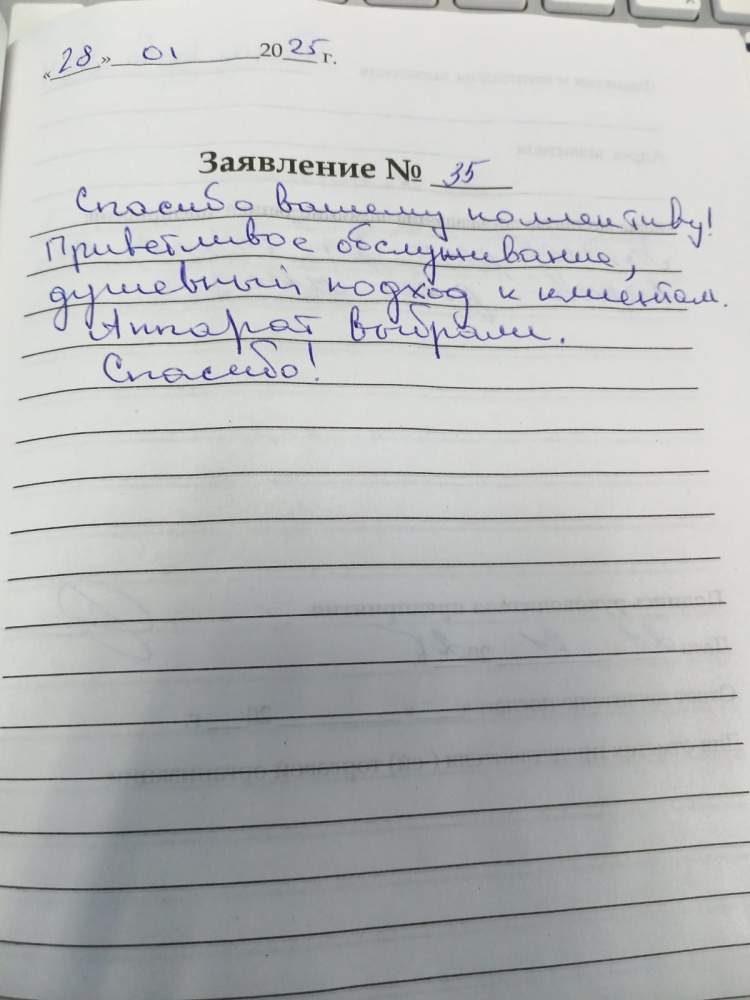 «28» 01 2025 г.
Заявление № 35
Спасибо вашему коллективу!
Приветливое обслуживание,
душевный подход к клиентам.
Аппарат выбрали.
Спасибо!